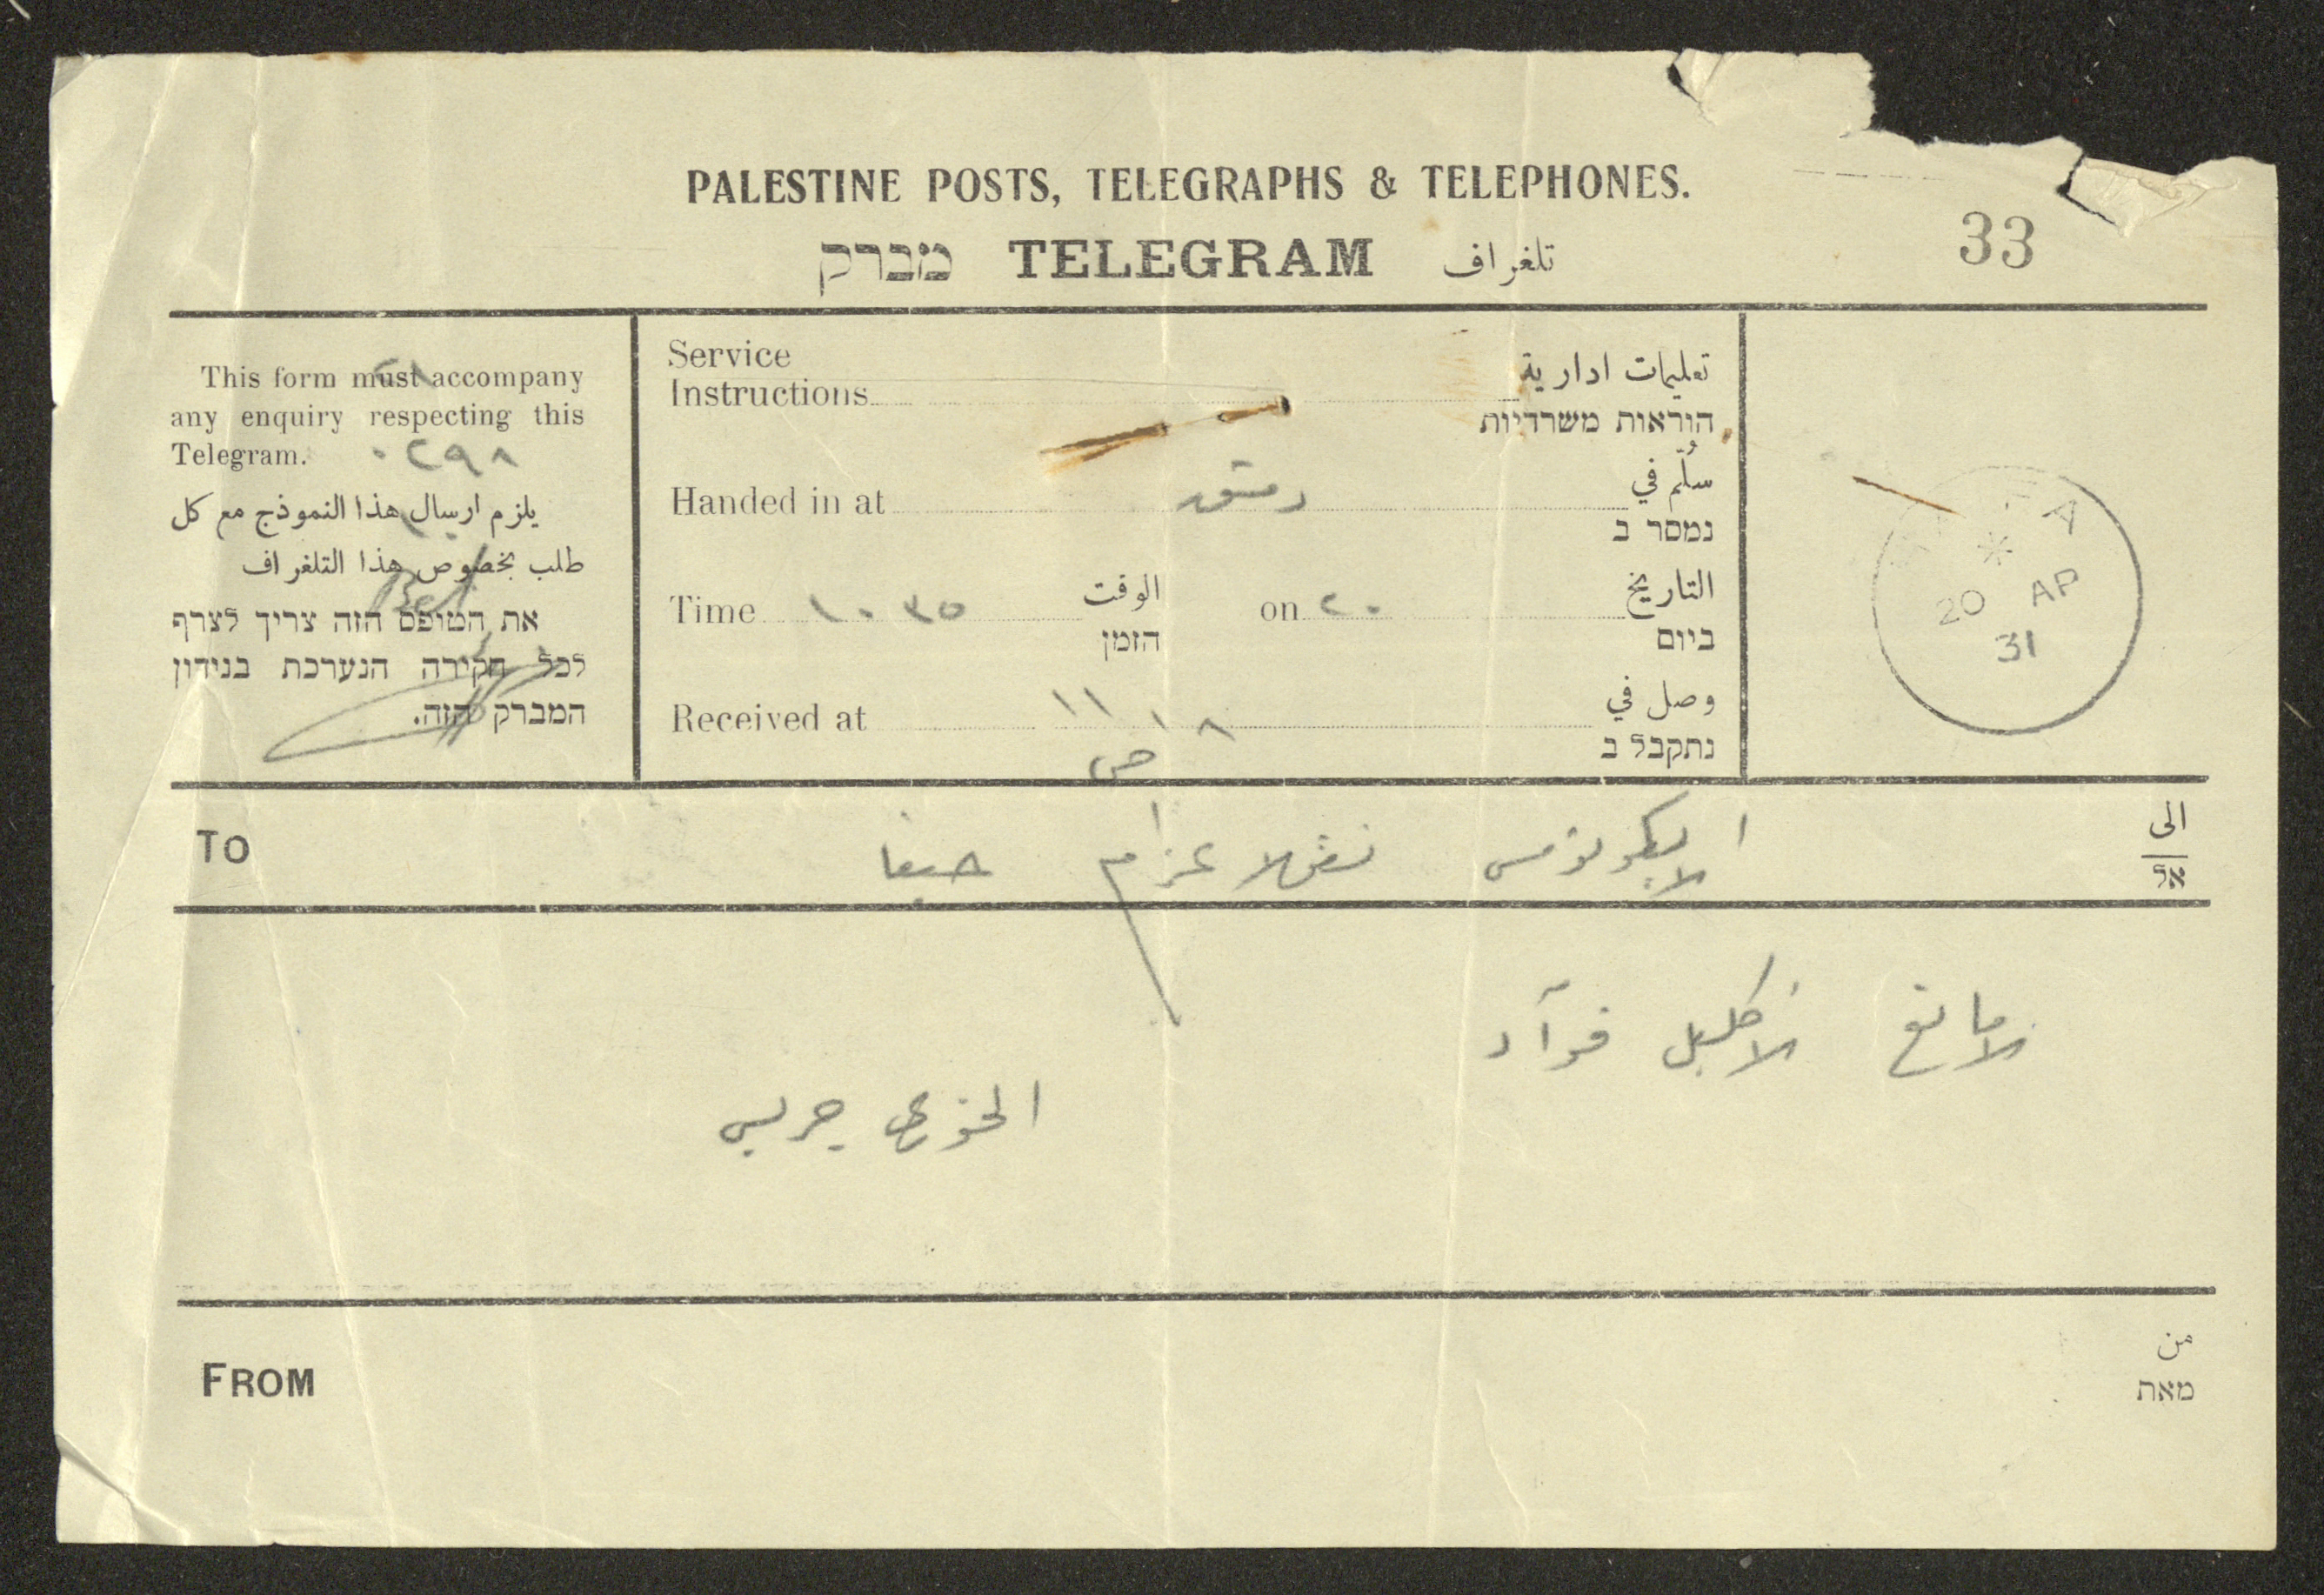 PALESTINE POSTS, TELEGRAPHS & TELEPHONES.
מברק TELEGRAM تلغراف
33
This form must accompany
any enquiry respecting this
Telegram.
٠٢٩٨
يلزم ارسال هذا النموذج مع كل
طلب بخصوص هذا التلغراف
את הטופס הזה צריך לצרף
לכל חקירה הנערכת בנידון
המברק הזה.
Service
Instructions
تعليمات ادارية
הוראות משרדיות
Handed in at دمشق سُلّم في
נמסר ב
Time ١٠ ٣٥ الوقت on ٢٠ التاريخ
הזמן ביום
Received at ١١ ١٨ وصل في
ص נתקבל ב
20 AP
31
TO الايكونومس نقولا عزام حيفا الى
אל
لامانع لاكليل فوآد
الخوري جريس
FROM من
מאת